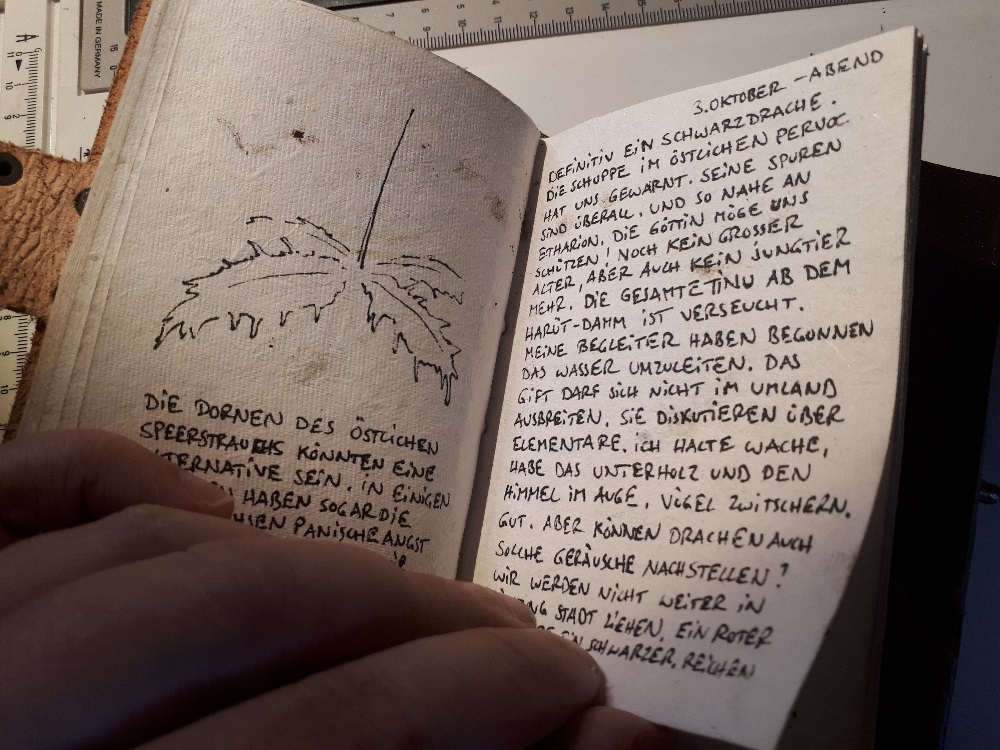 MADE IN GERMANY
DIE DORNEN DES ÖSTLICHEN
SPEERSTRAUCHS KÖNNTEN EINE
SEIN. IN EINIGEN
HABEN SOGAR DIE
PANISCHE ANGST
3. OKTOBER – ABEND
DEFINITIV EIN SCHWARZDRACHE.
DIE SCHUPPE IM ÖSTLICHEN PERVOC
HAT UNS GEWARNT. SEINE SPUREN
SIND ÜBERALL. UND SO NAHE AN
ETHARION. DIE GÖTTIN MÖGE UNS
SCHÜTZEN! NOCH KEIN GROSSER
ALTER, ABER AUCH KEIN JUNGTIER
MEHR. DIE GESAMTE TINU AB DEM
HARÛT-DAMM IST VERSEUCHT.
MEINE BEGLEITER HABEN BEGONNEN
DAS WASSER UMZULEITEN. DAS
GIFT DARF SICH NICHT IM UMLAND
AUSBREITEN. SIE DISKUTIEREN ÜBER
ELEMENTARE. ICH HALTE WACHE,
HABE DAS UNTERHOLZ UND DEN
HIMMEL IM AUGE. VÖGEL ZWITSCHERN.
GUT. ABER KÖNNEN DRACHEN AUCH
SOLCHE GERÄUSCHE NACHSTELLEN?
WIR WERDEN NICHT WEITER IN
STADT ZIEHEN. EIN ROTER
EIN SCHWARZER. REICHEN